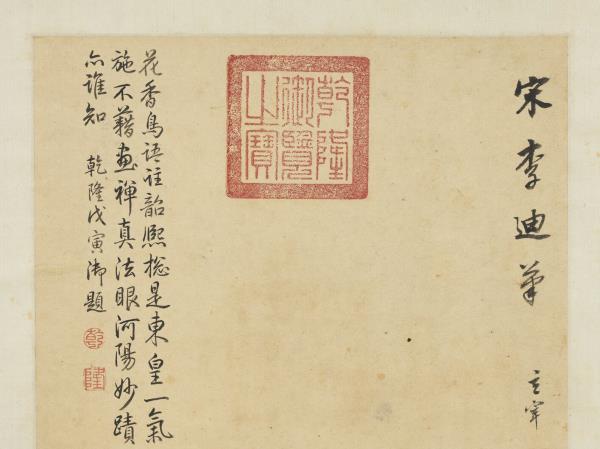 宋李迪筆
玄宰
乾隆
御覽
之寶
花香鳥語註韶熈捴是東皇一氣
施不藉畫禪真法眼河陽妙蹟
亦誰知 乾隆戊寅御題
乾
隆